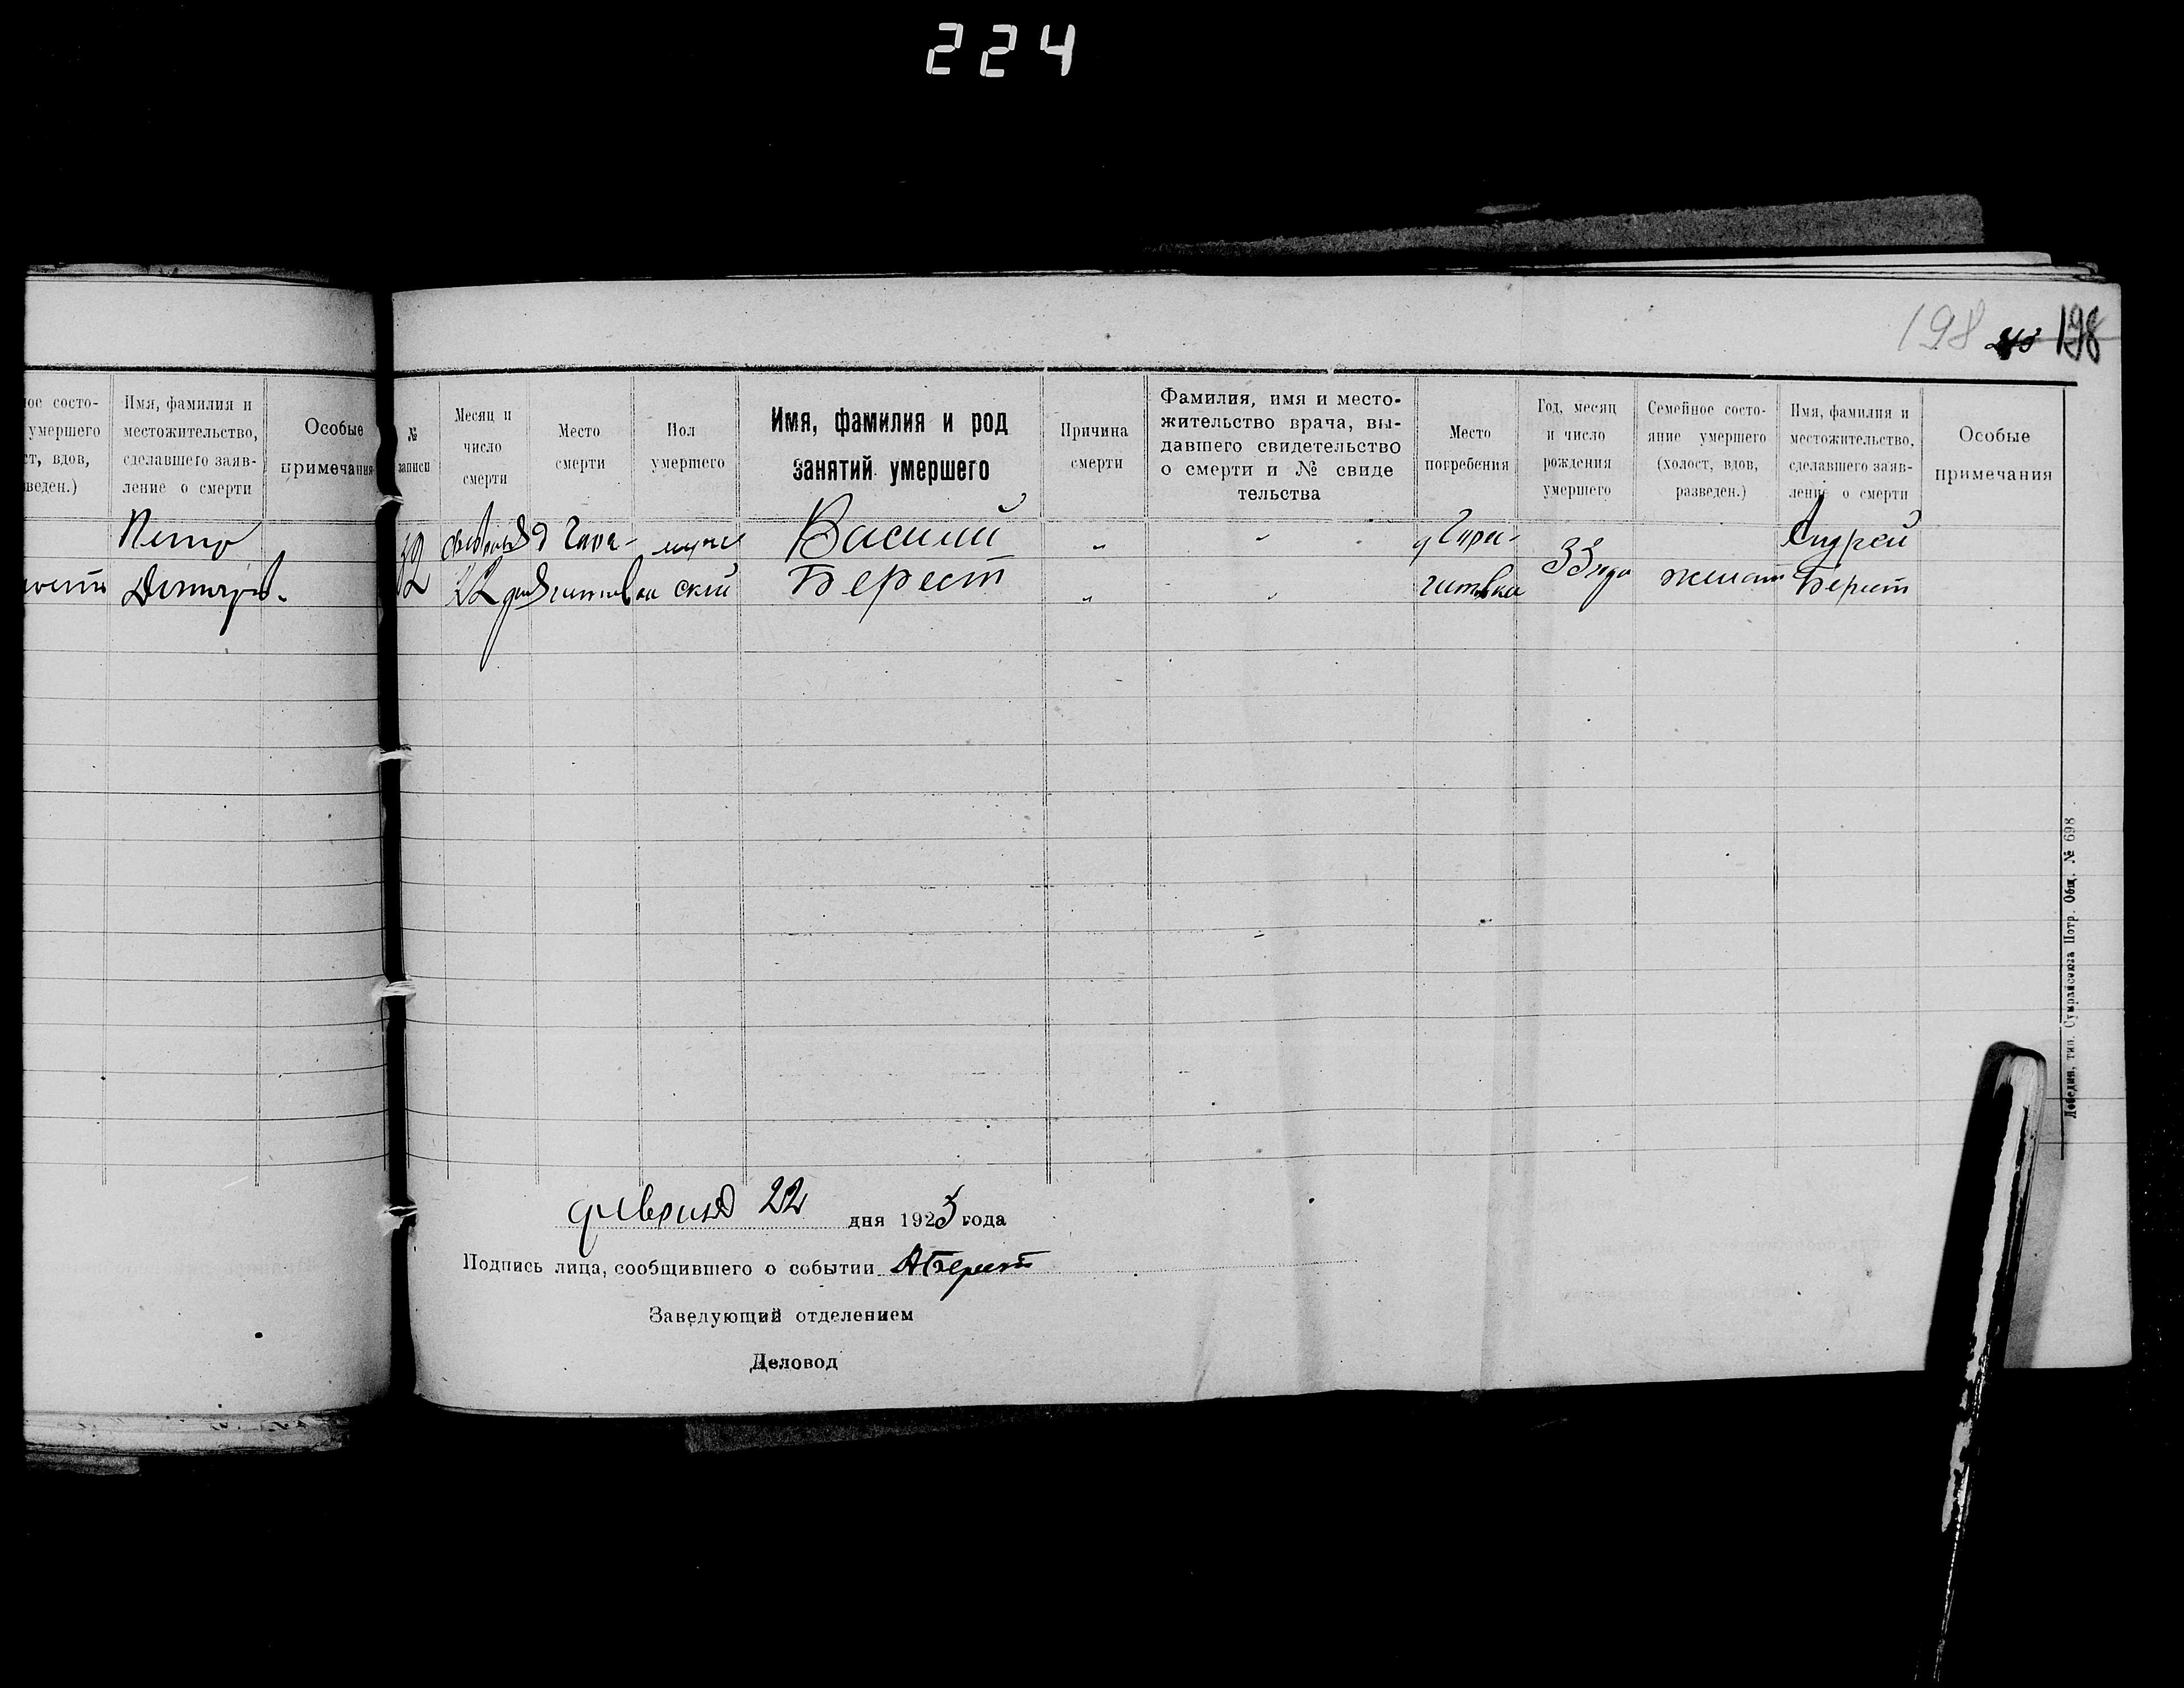 224
198 198
ное состо-
умершего
ст, вдов,
веден.)
Имя, фамилия и
местожительство,
сделавшего заяв-
ление о смерти
Особые
примечания
Петро
№
записи
Месяц и
число
смерти
Место
смерти
Пол
умершего
Имя, фамилия и род
занятий умершего
Причина
смерти
Фамилия, имя и место-
жительство врача, вы-
давшего свидетельство
о смерти и № свиде
тельства
Место
погребения
Год, месяц
и число
рождения
умершего
Семейное состо-
яние умершего
(холост, вдов,
разведен.)
Имя, фамилия и
местожительство,
сделавшего заяв-
ление о смерти
Особые
примечания
Василий
Берест
22 дня
ский
33 года
женат
Андрей
Берест
февраля 22 дня 1923 года
Подпись лица, сообщившего о событии АБерест
Заведующий отделением
Деловод
Лебедин, тип. Сумрайсоюза Потр. Общ. № 698.